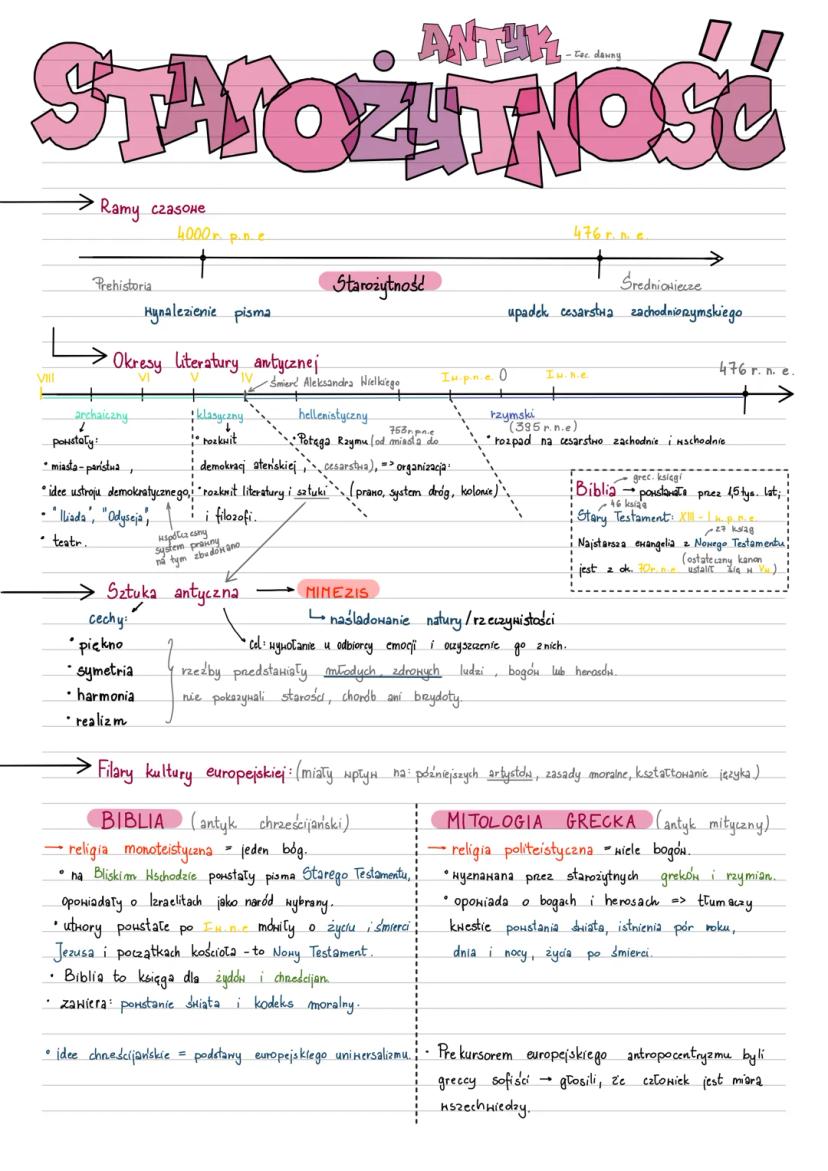 ANTYK - łac. dawny
STAROŻYTNOŚĆ
Ramy czasowe
4000 r. p.n.e. 476 r. n. e.
Prehistoria Starożytność Średniowiecze
wynalezienie pisma upadek cesarstwa zachodniorzymskiego
Okresy literatury antycznej
476 r. n. e.
VIII VI V IV Śmierć Aleksandra Wielkiego I w. p. n. e. 0 I w. n. e.
archaiczny klasyczny hellenistyczny rzymski
(395 r. n. e)
powstały: • rozkwit • Potęga Rzymu (od miasta do • rozpad na cesarstwo zachodnie i wschodnie
753r.p.n.e
• miasta-państwa, demokracji ateńskiej, cesarstwa), => organizacja:
• idee ustroju demokratycznego, • rozkwit literatury i sztuki (prawo, system dróg, kolonie)
• "Iliada", "Odyseja", i filozofi.
• teatr.
współczesny
system prawny
na tym zbudowano
grec. księgi
Biblia → powstawała przez 1,5 tys. lat;
46 ksiąg
Stary Testament: XIII - I w. p. n. e.
27 ksiąg
Najstarsza ewangelia z Nowego Testamentu
(ostateczny kanon
jest z ok. 70r. n. e ustalił się w Vw)
Sztuka antyczna → MIMEZIS
cechy: naśladowanie natury/rzeczywistości
• piękno Cel: wywołanie u odbiorcy emocji i oczyszczenie go z nich.
• symetria rzeźby przedstawiały młodych, zdrowych ludzi, bogów lub herosów.
• harmonia nie pokazywali starości, chorób ani brzydoty.
• realizm
Filary kultury europejskiej: (miały wpływ na: późniejszych artystów, zasady moralne, kształtowanie języka.)
BIBLIA (antyk chrześcijański)
→ religia monoteistyczna = jeden bóg.
• na Bliskim Wschodzie powstały pisma Starego Testamentu,
opowiadały o Izraelitach jako naród wybrany.
• utwory powstałe po I w. n. e mówiły o życiu i śmierci
Jezusa i początkach kościoła - to Nowy Testament.
• Biblia to księga dla żydów i chrześcijan.
• zawiera: powstanie świata i kodeks moralny.
• idee chrześcijańskie = podstawy europejskiego uniwersalizmu.
MITOLOGIA GRECKA (antyk mityczny)
→ religia politeistyczna = wiele bogów.
• wyznawana przez starożytnych greków i rzymian.
• opowiada o bogach i herosach => tłumaczy
kwestie powstania świata, istnienia pór roku,
dnia i nocy, życia po śmierci.
• Prekursorem europejskiego antropocentryzmu byli
greccy sofiści → głosili, że człowiek jest miarą
wszechwiedzy.